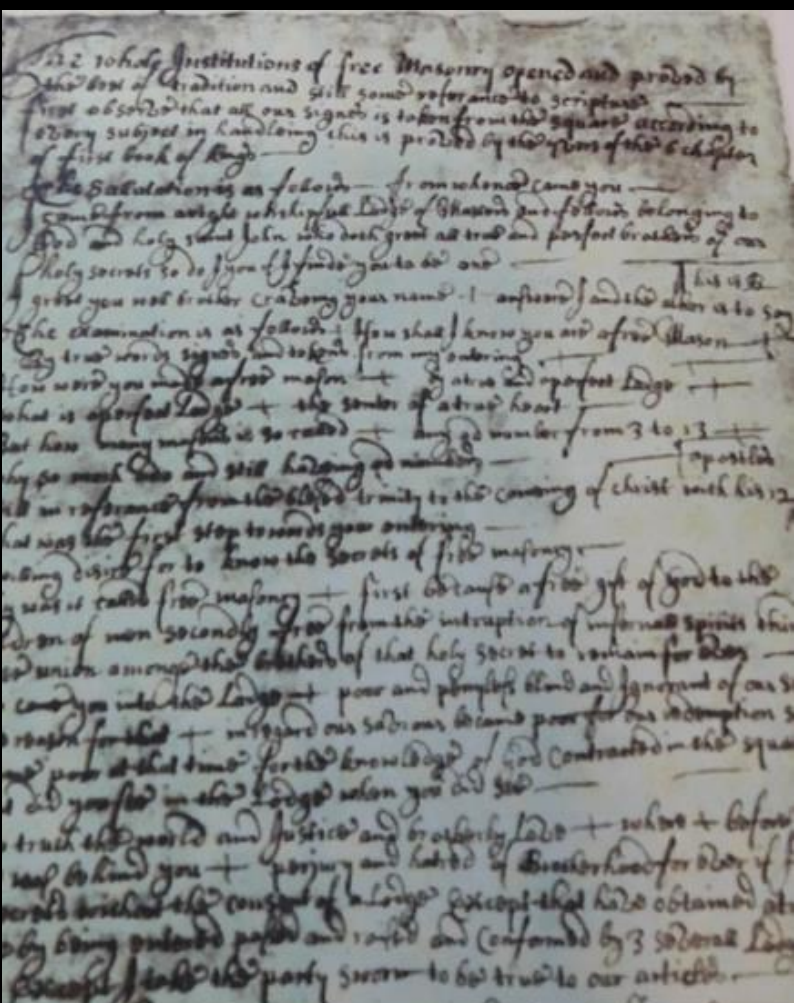 The whole Institutions of free Masonry opened and proved by
the best of tradition and still some referance to scripture
first observe that all our signes is taken from the square according to
every subject in handleing this is proved by the of the 6 chapter
of first book of kings
The Sallutation is as follows from whence came you
I come from a right worshipfull Lodge of Masons and fellows belonging to
God and holy saint John who doth greet all true and perfect brothers of our
holy secrets so do I you if I finde you to be one
I greet you well brother craveing your name answere J and the other is to say
this is B
The examination is as follows How shall I know you are a free Mason
By true words signes and tokens from my entering
How were you made a free mason by a true and a perfect Lodge
what is a perfect Lodge the senter of a true heart
But how many masons is so called any od number from 3 to 13
why so much ado and still haveing od numbers
apostles
all in referance from the blesed trinity to the comeing of christ with his 12
what was the first step towards your entering
a willing desire for to know the secrets of free masonry
why was it called free masonry first because a free gift of God to the
children of men secondly a free from the intruption of infernal spirits
union amongst the brothers of that holy secret to remain for ever
came you into the Lodge poor and penyless blind and Ignorant of our
reason for that in regard our saviour became poor for our redemption
poor at that time for the knowledge of God Contracted in the
did you see in the Lodge when you did see
truth the world and Justice and brotherly Love where before
was behind you perjury and hatred of Brotherhood for ever if
without the consent of a Lodge Except that have obtained
by being entered passed and raised and Conformed by 3 severall
Except I take the party sworn to be true to our articles